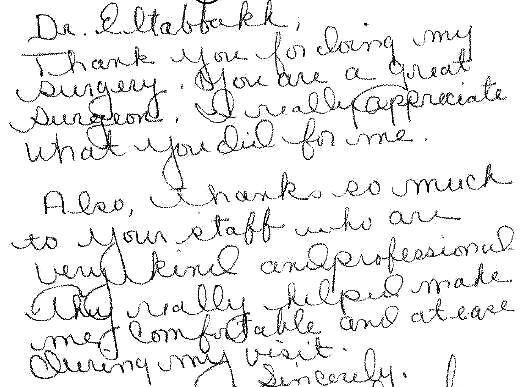 Dr. Eltabbakh,
Thank you for doing my
surgery. You are a great
surgeon. I really appreciate
what you did for me.
Also, thanks so much
to your staff who are
very kind and professional
They really helped made
me comfortable and at ease
during my visit.
Sincerely,